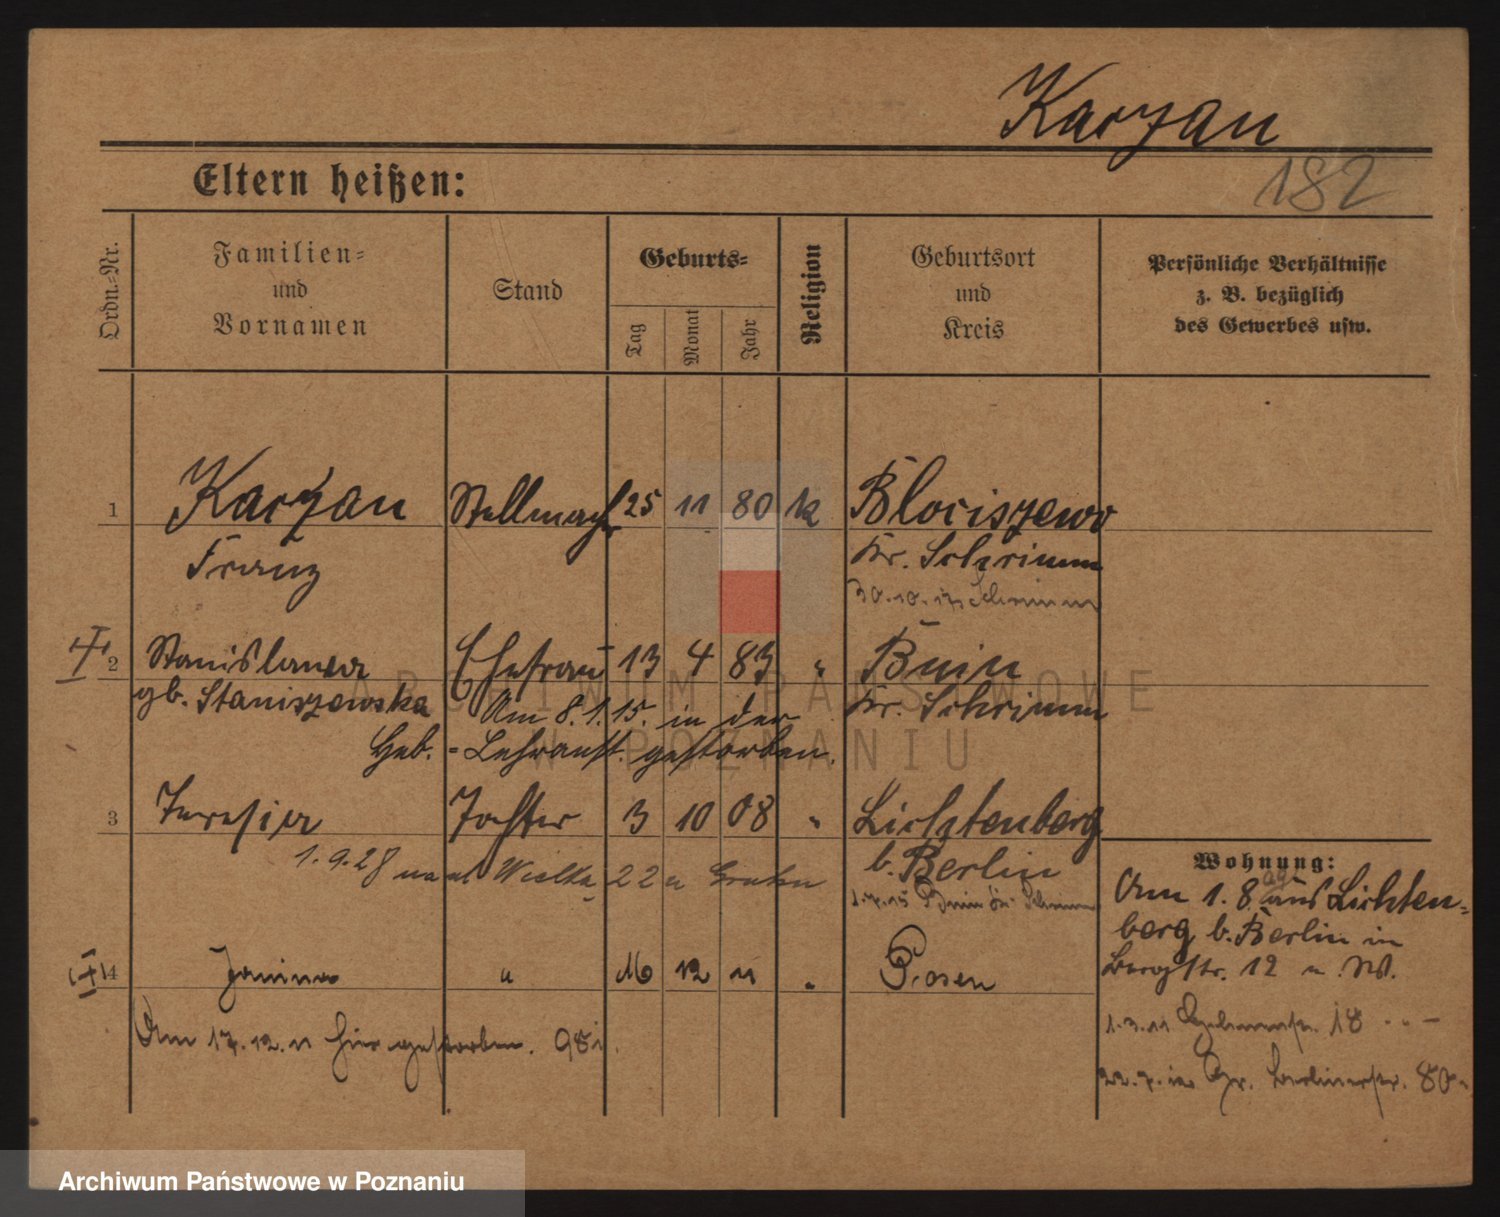 Karzan
182
Eltern heißen:
Ordn.-Nr.
Familien-
und
Vornamen
Stand
Geburts-
Tag
Monat
Jahr
Religion
Geburtsort
und
Kreis
Persönliche Verhältnisse
z. B. bezüglich
des Gewerbes usw.
1 Karzan Stellmach 25 11 80 k Blociszewo
Franz Kr. Schrimm
30.10. Schrimm
2 Stanislawa Ehefrau 13 4 83 " Bnin
gb. Staniszewska Kr. Schrimm
Am 8.1.15. in der
Heb.-Lehranst. gestorben.
3 Tochter 3 10 08 " Lichtenberg
b. Berlin
1.9.28 Wielka 22
Wohnung:
Am 1.8. aus Lichten-
berg b. Berlin in
Bergstr. 12
4 Janina " 16 12 11 " Posen
Am 17.12.11 hier gestorben.
1.3.11 18
22.7. Gr. Berlinerstr. 80
ARCHIWUM PAŃSTWOWE
W POZNANIU
Archiwum Państwowe w Poznaniu